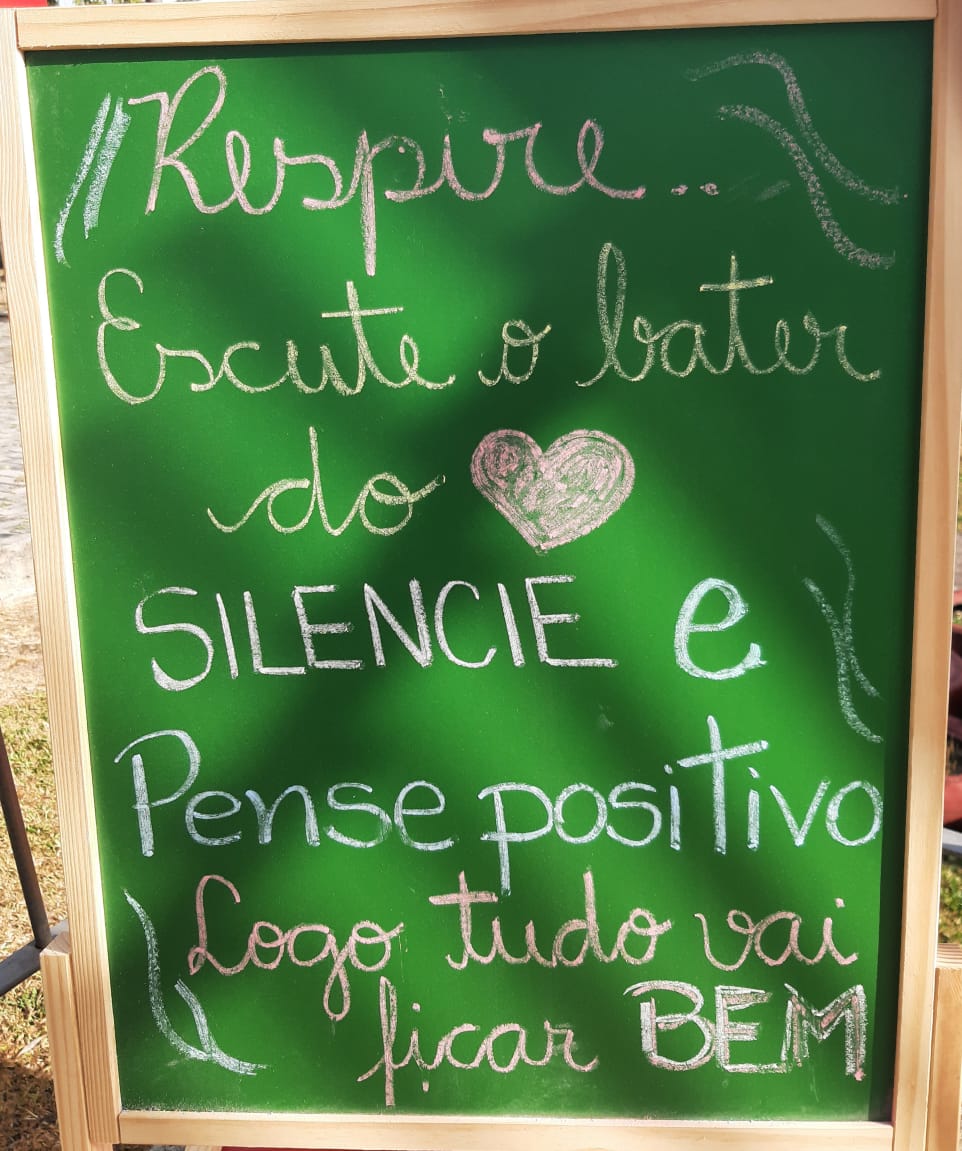 Respire...
Escute o bater
do
SILENCIE e
Pense positivo
Logo tudo vai
ficar BEM